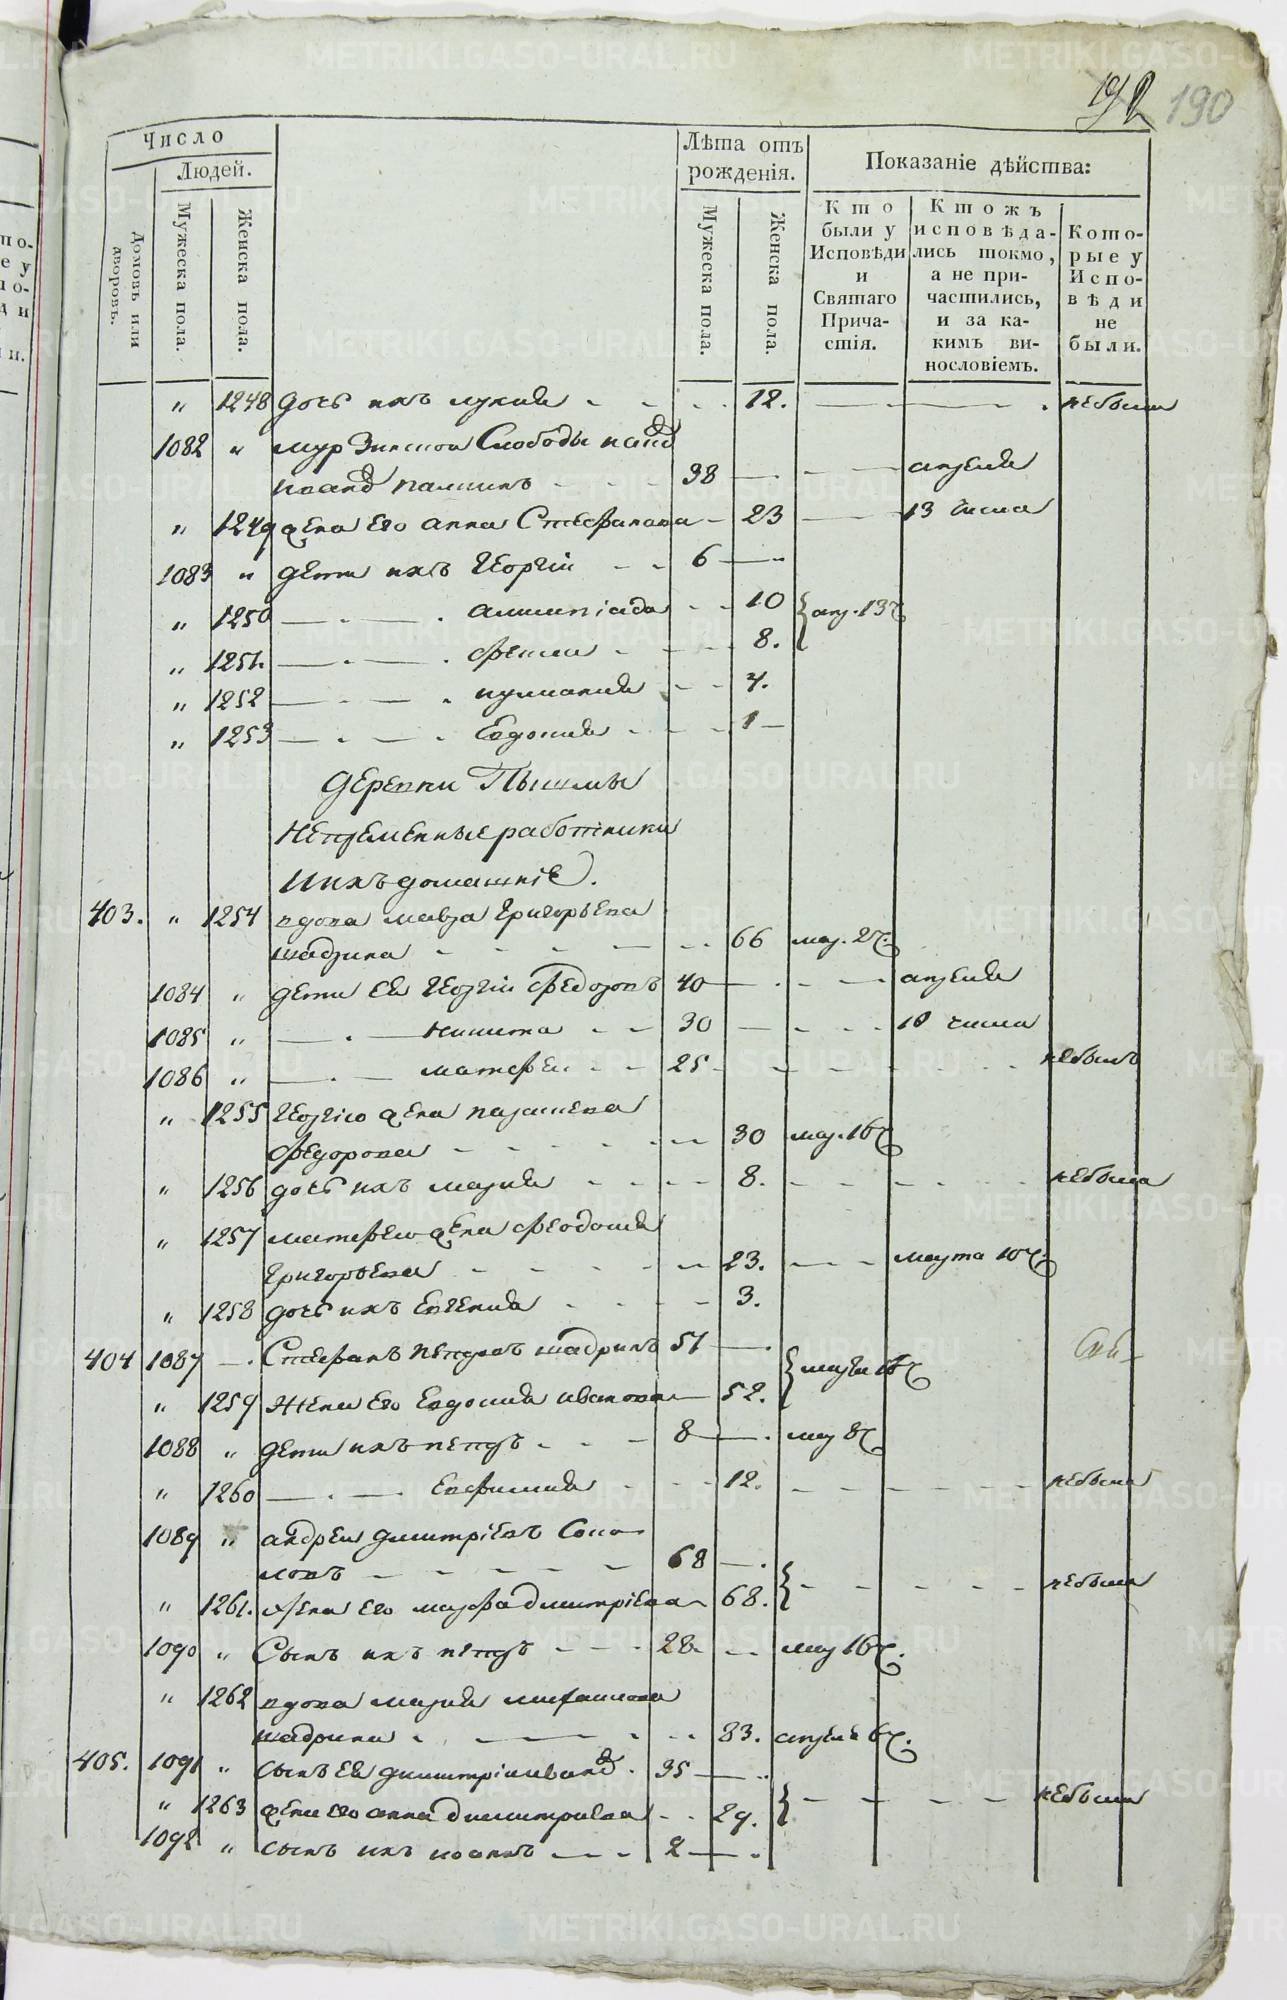 192 190
Число
Людей.
Домовъ или дворовъ.
Мужеска пола.
Женска пола.
Лѣта отъ рожденія.
Мужеска пола.
Женска пола.
Показаніе дѣйства:
Кто были у Исповѣди и Святаго Причастія.
Ктожъ исповѣдались токмо, а не причастились, и за какимъ винословіемъ.
Которые у Исповѣди не были.
„ 1248 дочь ихъ лукия 12. небыла
1082 „ мурзинской Слободы
38 апреля
„ 1249 жена его анна Стефанова 23 13 числа
1083 „ дети ихъ георгій 6
„ 1250 10 апр. 13 ч
„ 1251. 8.
„ 1252 4.
„ 1253 Евдокия 1
деревни Пышмы
непременные работники
ихъ домашніе.
403. „ 1254 вдова мавра григорьева
шадрина 66 мар. 2 ч.
1084 „ дети ея георгій федоровъ 40 апреля
1085 „ никита 30 10 числа
1086 „ матфеи 25 небылъ
„ 1255 георгію жена
федорова 30 мар. 16 ч
„ 1256 дочь ихъ мария 8. небыла
„ 1257 матфею жена феодосия
григорьева 23. марта 10 ч.
„ 1258 дочь ихъ евгения 3.
404 1087 Стефанъ петровъ шадринъ 51
марта 16 ч
„ 1259 жена его евдокия иванова 52.
1088 „ дети ихъ петръ 8 мар 8 ч
„ 1260 Евфимия 12. небыла
1089 „ андреи димитріевъ Соко-
ловъ 68
небыли
„ 1261. жена его марфа димитріева 68.
1090 „ Сынъ ихъ петръ 28. мар 16 ч.
„ 1262 вдова мария
шадрина 83. апреля 6 ч.
405. 1091 „ сынъ ея димитріи иванов 35
небыли
„ 1263 жена его анна димитриева 29.
1092 „ сынъ ихъ иоаннъ 2
METRIKI.GASO-URAL.RU